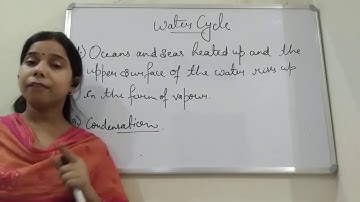 Water Cycle
Oceans and seas heated up and the
upper surface of the water rises up
in the form of vapour.
Condensation.